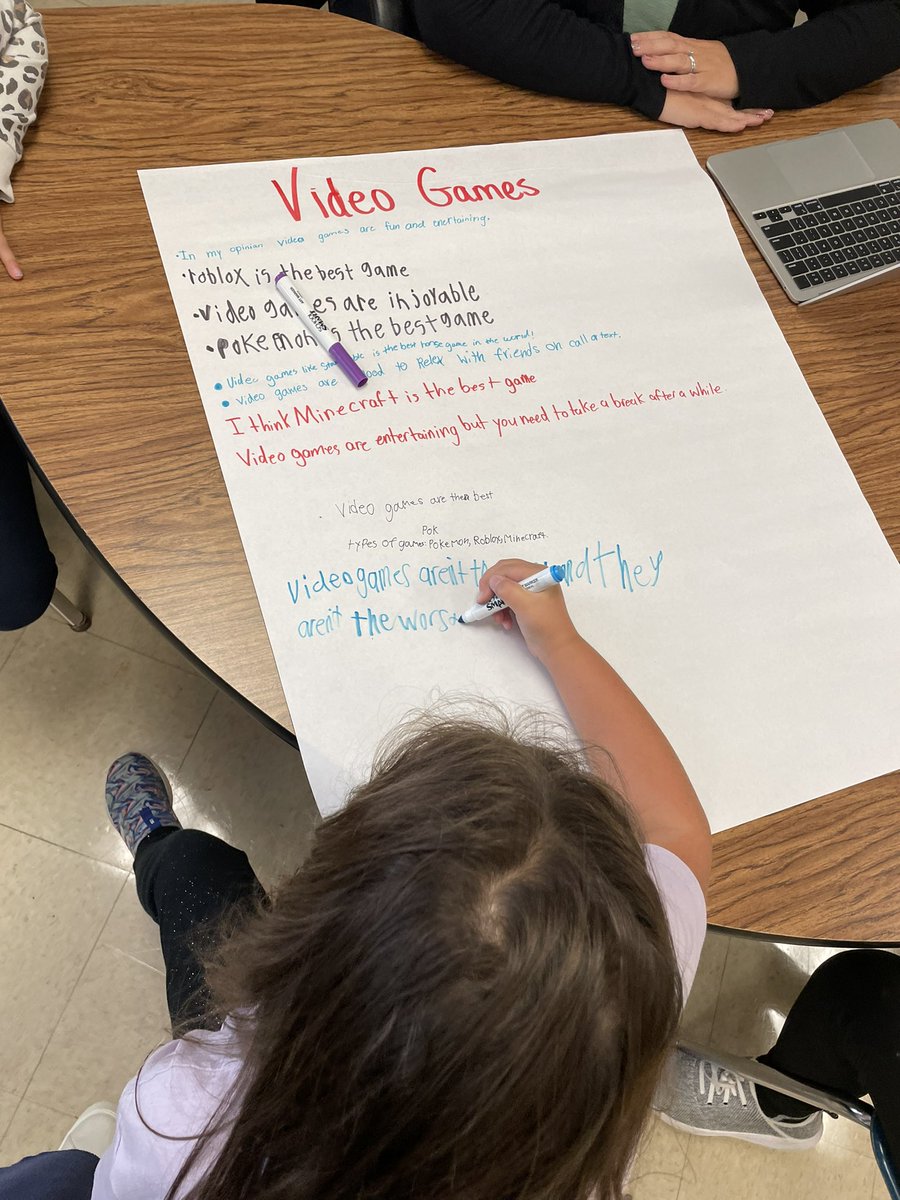 Video Games
·In my opinion video games are fun and entertaining.
·roblox is the best game
·video games are injoyable
·pokemon is the best game
• Video games like is the best horse game in the world!
• Video games are good to Relex with friends on call a text.
I think Minecraft is the best game
Video games are entertaining but you need to take a break after a while
. Video games are then best
Pok
types of game: Pokemon, Roblox, Minecraft.
Video games aren't and they
aren't the worst